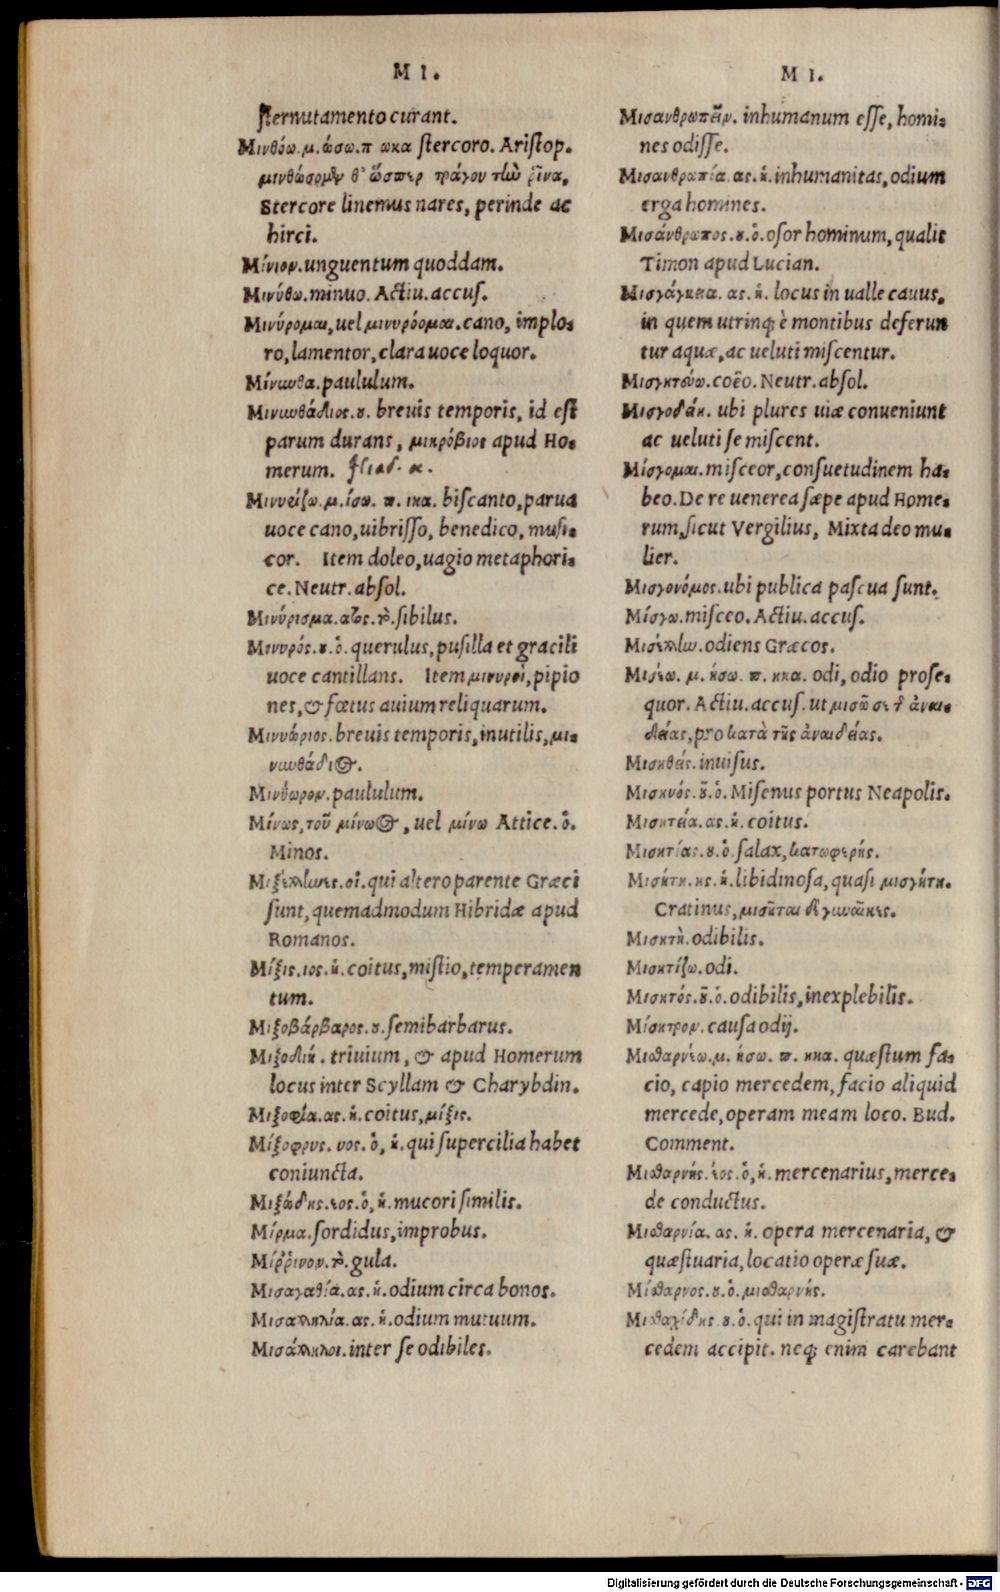 M I.
sternutamento curant.
Μινθόω. μ. ώσω. π ωκα stercoro. Aristop.
μινθώσομεν θ' ὥσπερ τράγου τὴν ῥῖνα,
Stercore linemus nares, perinde ac
hirci.
Μίνιον. unguentum quoddam.
Μινύθω. minuo. Actiu. accus.
Μινύρομαι, uel μινυρόομαι. cano, implo-
ro, lamentor, clara uoce loquor.
Μίνυνθα. paululum.
Μινυνθάδιος. ου. breuis temporis, id est
parum durans, μικρόβιος apud Ho-
merum. ἰλιαδ. α.
Μινυείζω. μ. ίσω. π. ικα. biscanto, parua
uoce cano, uibrisso, benedico, musi-
cor. Item doleo, uagio metaphori-
ce. Neutr. absol.
Μινύρισμα. ατος. τὸ. sibilus.
Μινυρός. ου. ὁ. querulus, pusilla et gracili
uoce cantillans. Item μινυροὶ, pipio
nes, & fœtus auium reliquarum.
Μινυώριος. breuis temporis, inutilis, μι-
νυνθάδιος.
Μινύωρον. paululum.
Μίνως, τοῦ μίνωος, uel μίνω Attice. ὁ.
Minos.
Μιξέλλωες. οἱ. qui altero parente Græci
sunt, quemadmodum Hibridæ apud
Romanos.
Μίξις. ιος. ἡ. coitus, mistio, temperamen
tum.
Μιξοβάρβαρος. ου. semibarbarus.
Μιξοδίη. triuium, & apud Homerum
locus inter Scyllam & Charybdin.
Μιξοφία. ας. ἡ. coitus, μίξις.
Μίξοφρυς. υος. ὁ, ἡ. qui supercilia habet
coniuncta.
Μιξώδης. εος. ὁ, ἡ. mucori similis.
Μίρμα. sordidus, improbus.
Μίῤῥινον. τὸ. gula.
Μισαγαθία. ας. ἡ. odium circa bonos.
Μισαλληλία. ας. ἡ. odium mutuum.
Μισάλληλοι. inter se odibiles.
M I.
Μισανθρωπεῖν. inhumanum esse, homi-
nes odisse.
Μισανθρωπία. ας. ἡ. inhumanitas, odium
erga homines.
Μισάνθρωπος. ου. ὁ. osor hominum, qualis
Timon apud Lucian.
Μισγάγκεια. ας. ἡ. locus in ualle cauus,
in quem utrinq; è montibus deferun
tur aquæ, ac ueluti miscentur.
Μισγητεύω. coëo. Neutr. absol.
Μισγοδίη. ubi plures uiæ conueniunt
ac ueluti se miscent.
Μίσγομαι. misceor, consuetudinem ha-
beo. De re uenerea sæpe apud Home-
rum, sicut Vergilius, Mixta deo mu-
lier.
Μισγονόμος. ubi publica pascua sunt.
Μίσγω. misceo. Actiu. accus.
Μισέλλων. odiens Græcos.
Μισέω. μ. ήσω. π. ηκα. odi, odio prose-
quor. Actiu. accus. ut μισῶ σε τ ἀναι-
δείας, pro κατὰ τῆς ἀναιδείας.
Μισηθείς. inuisus.
Μισηνός. οῦ. ὁ. Misenus portus Neapolis.
Μισητεία. ας. ἡ. coitus.
Μισητίας. ου. ὁ. salax, κατωφερής.
Μισήτη. ης. ἡ. libidinosa, quasi μισγήτη.
Cratinus, μισῆται δὲ γυναῖκες.
Μισητὴ. odibilis.
Μισητίζω. odi.
Μισητός. οῦ. ὁ. odibilis, inexplebilis.
Μίσητρον. causa odij.
Μισθαρνέω. μ. ήσω. π. ηκα. quæstum fa-
cio, capio mercedem, facio aliquid
mercede, operam meam loco. Bud.
Comment.
Μισθαρνής. έος. ὁ, ἡ. mercenarius, merce-
de conductus.
Μισθαρνία. ας. ἡ. opera mercenaria, &
quæstuaria, locatio operæ suæ.
Μίσθαρνος. ου. ὁ. μισθαρνής.
Μισθαρχίδης. ου. ὁ. qui in magistratu mer-
cedem accipit. neq; enim carebant
Digitalisierung gefördert durch die Deutsche Forschungsgemeinschaft - DFG